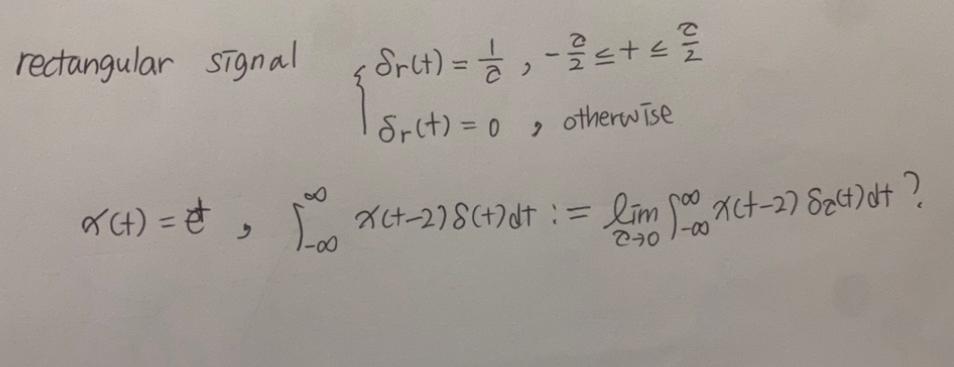 rectangular signal { δτ(t) = 1/τ , -τ/2 ≤ t ≤ τ/2
δτ(t) = 0 , otherwise
x(t) = t , ∫_{-∞}^{∞} x(t-2) δ(t) dt := lim_{τ→0} ∫_{-∞}^{∞} x(t-2) δτ(t) dt ?